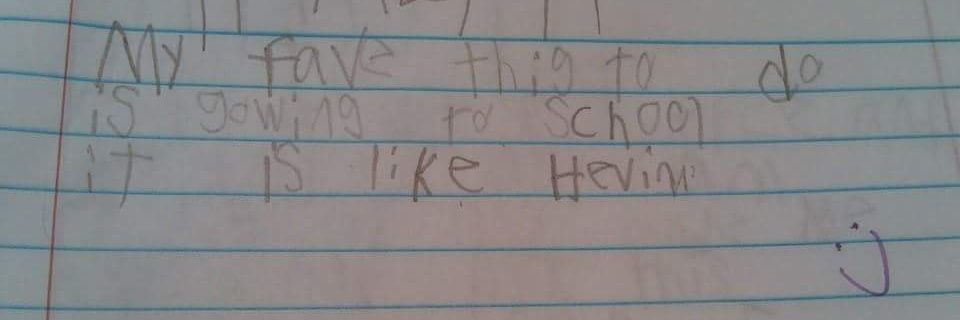 My fave thig to do
is gowing to School
it is like Hevin
:)